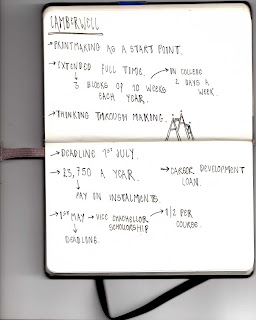 CAMBERWELL
→ PRINTMAKING AS A START POINT.
→ EXTENDED FULL TIME. → IN COLLEGE
↓
3 BLOCKS OF 10 WEEKS 2 DAYS A
EACH YEAR. WEEK.
→ THINKING THROUGH MAKING.
→ DEADLINE 1ST JULY.
→ £3,750 A YEAR. → CAREER DEVELOPMENT
LOAN.
↳ PAY ON INSTALMENTS.
→ 1ST MAY → VICE CHACHELLOR → 1/2 PER
SCHOLORSHIP COURSE.
↓
DEADLINE.